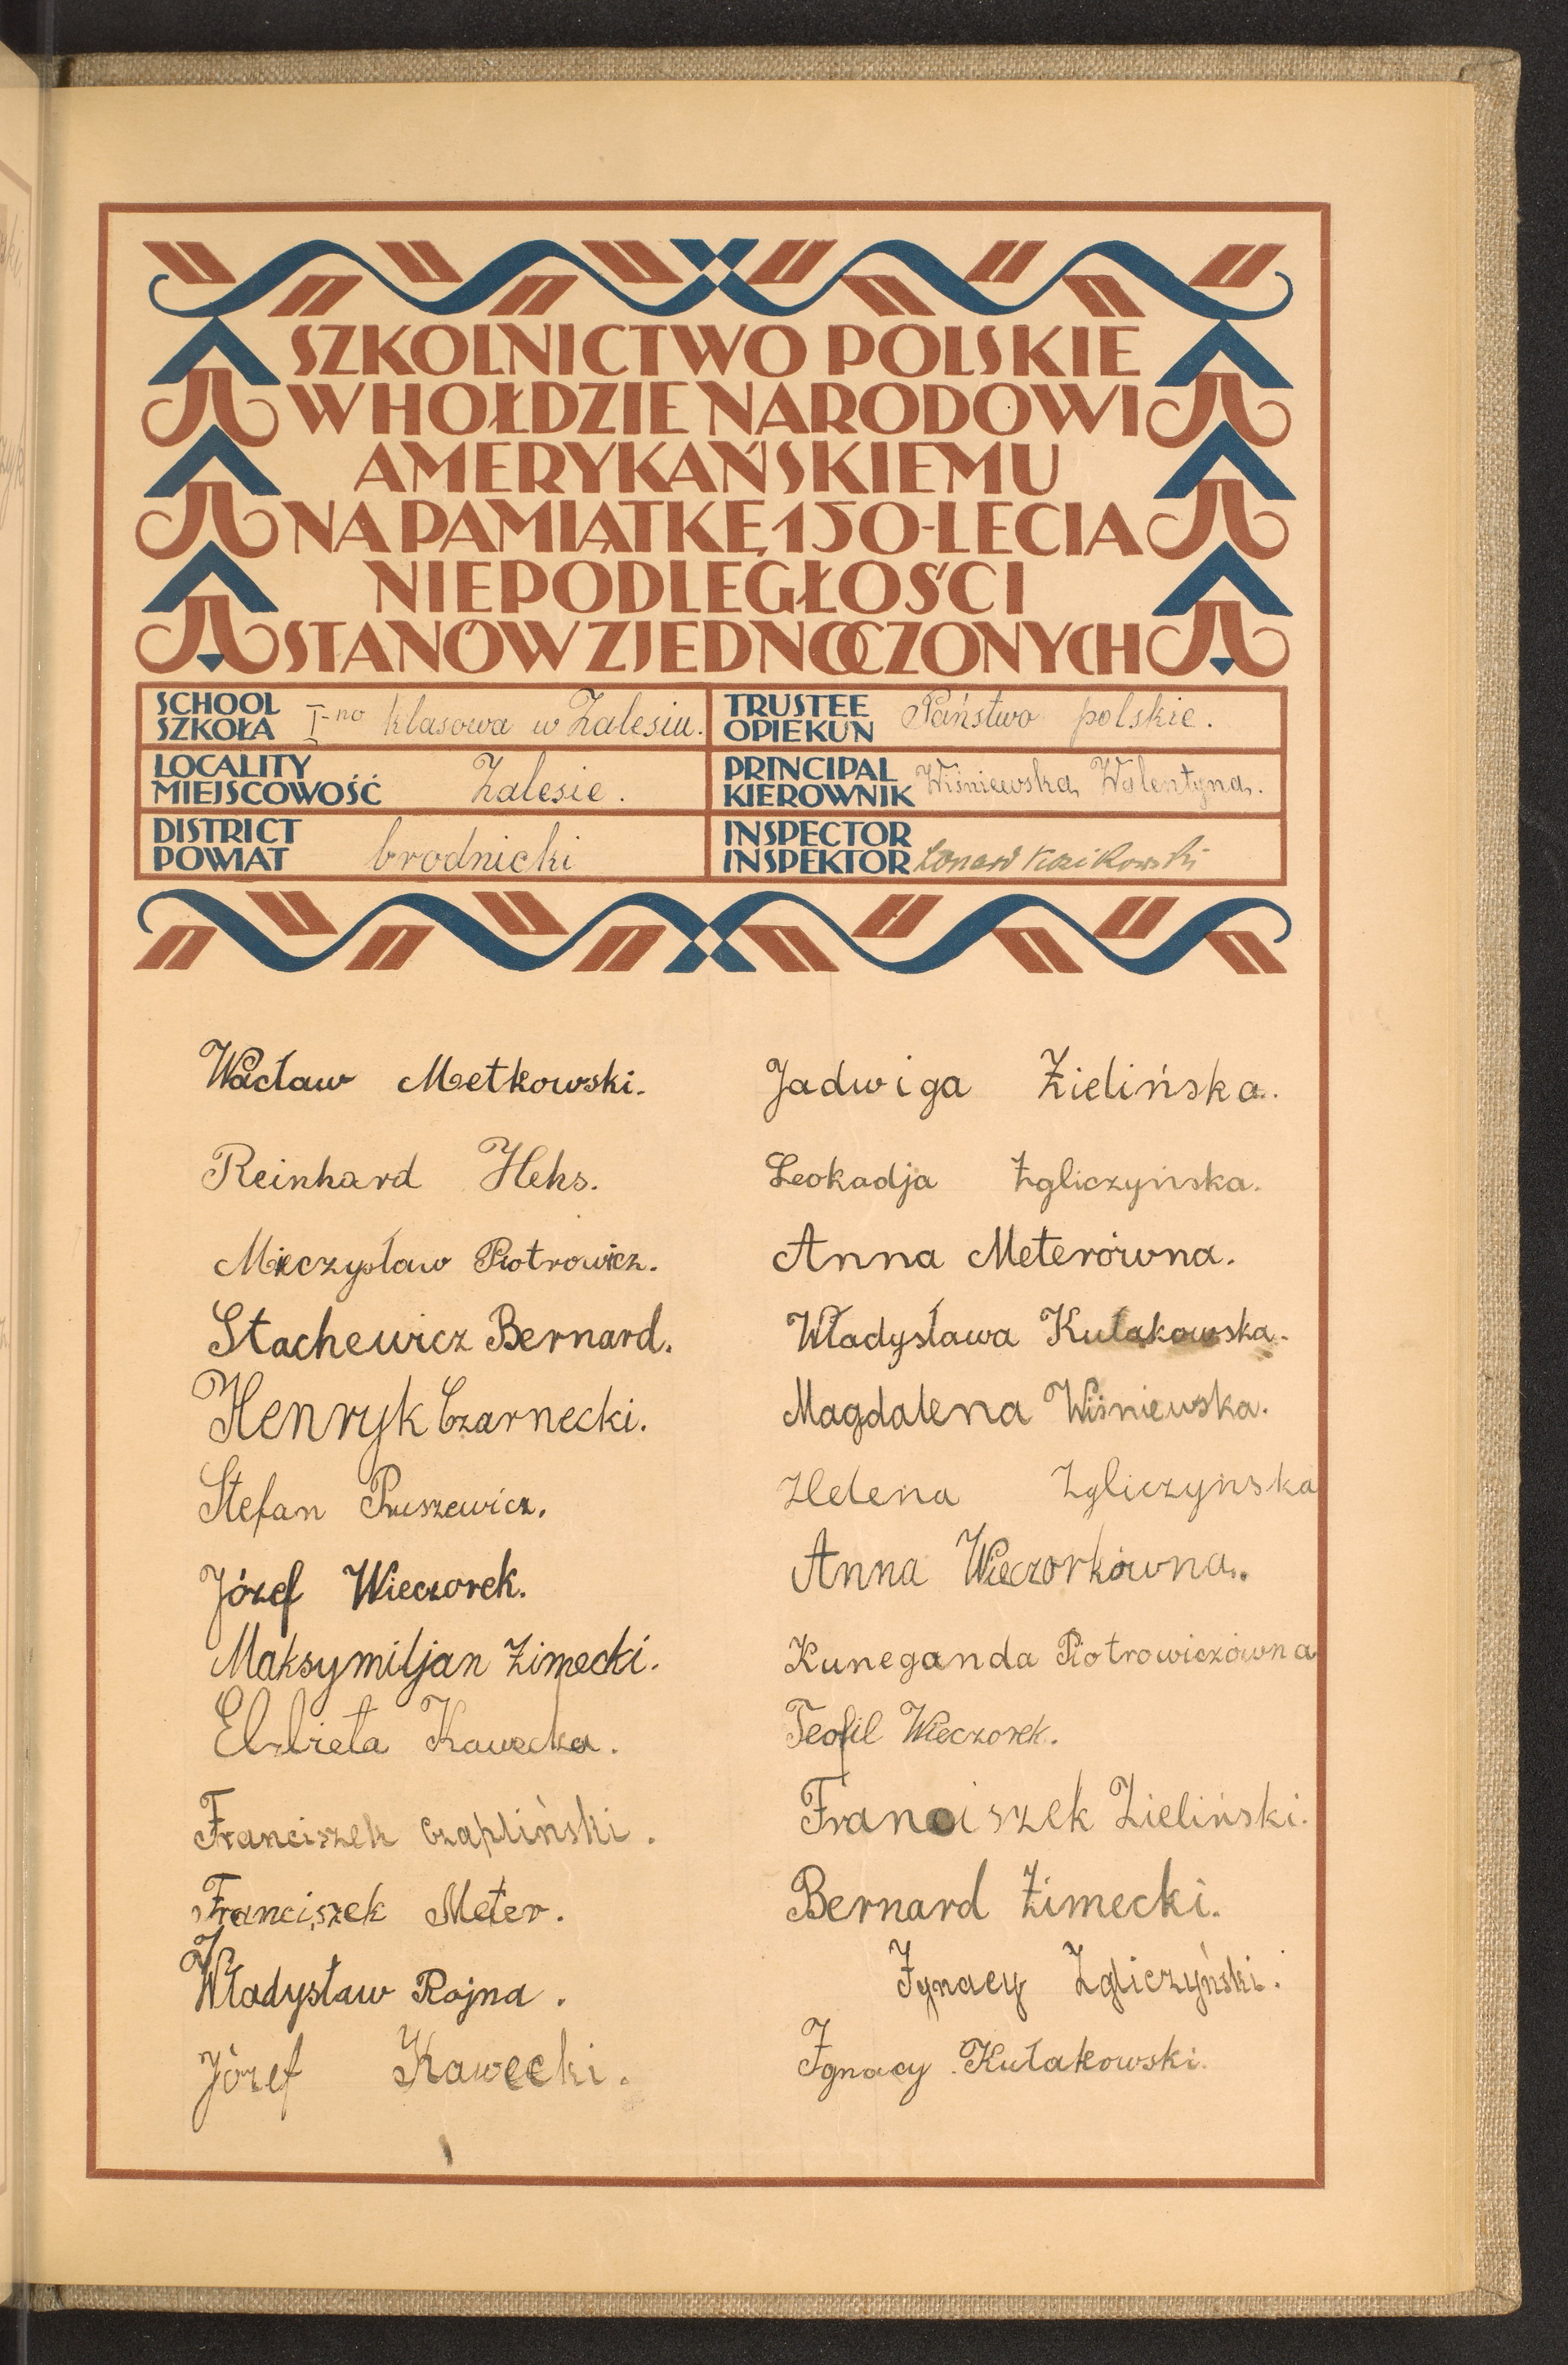 SZKOLNICTWO POLSKIE
W HOŁDZIE NARODOWI
AMERYKAŃSKIEMU
NA PAMIĄTKĘ 150-LECIA
NIEPODLEGŁOŚCI
STANÓW ZJEDNOCZONYCH
SCHOOL
SZKOŁA I-no klasowa w Zalesiu.
TRUSTEE
OPIEKUN Państwo polskie.
LOCALITY
MIEJSCOWOŚĆ Zalesie.
PRINCIPAL
KIEROWNIK Wiśniewska Walentyna.
DISTRICT
POWIAT brodnicki
INSPECTOR
INSPEKTOR
Wacław Metkowski.
Reinhard Heks.
Mieczysław Piotrowicz.
Stachewicz Bernard.
Henryk Czarnecki.
Stefan Pruszewicz.
Józef Wieczorek.
Maksymiljan Zimecki.
Elzbieta Kawecka.
Franciszek Czapliński.
Franciszek Meter.
Władysław Rojna.
Józef Kawecki.
Jadwiga Zielińska.
Leokadja Zgliczyńska.
Anna Meterówna.
Władysława Kułakowska.
Magdalena Wiśniewska.
Helena Zgliczynska
Anna Wieczorkówna.
Kuneganda Piotrowiczówna
Teofil Wieczorek.
Franciszek Zieliński.
Bernard Zimecki.
Ignacy Zgliczyński.
Ignacy Kułakowski.